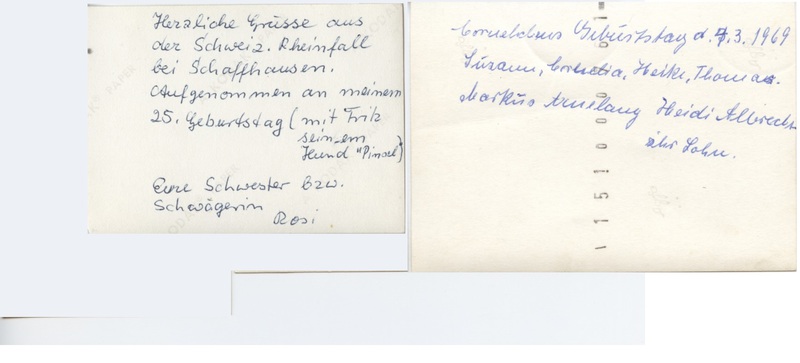 Herzliche Grüsse aus
der Schweiz. Rheinfall
bei Schaffhausen.
Aufgenommen an meinem
25. Geburtstag (mit Fritz
seinem
Hund "Pinsel")
Eure Schwester bzw.
Schwägerin
Rosi
Cornelchens Geburtstag d. 7.3. 1969
Suzann, Cornelia, Heike, Thomas.
Markus Amelang Heidi Albrecht
ihr Sohn.
1 5 1 0 0 0